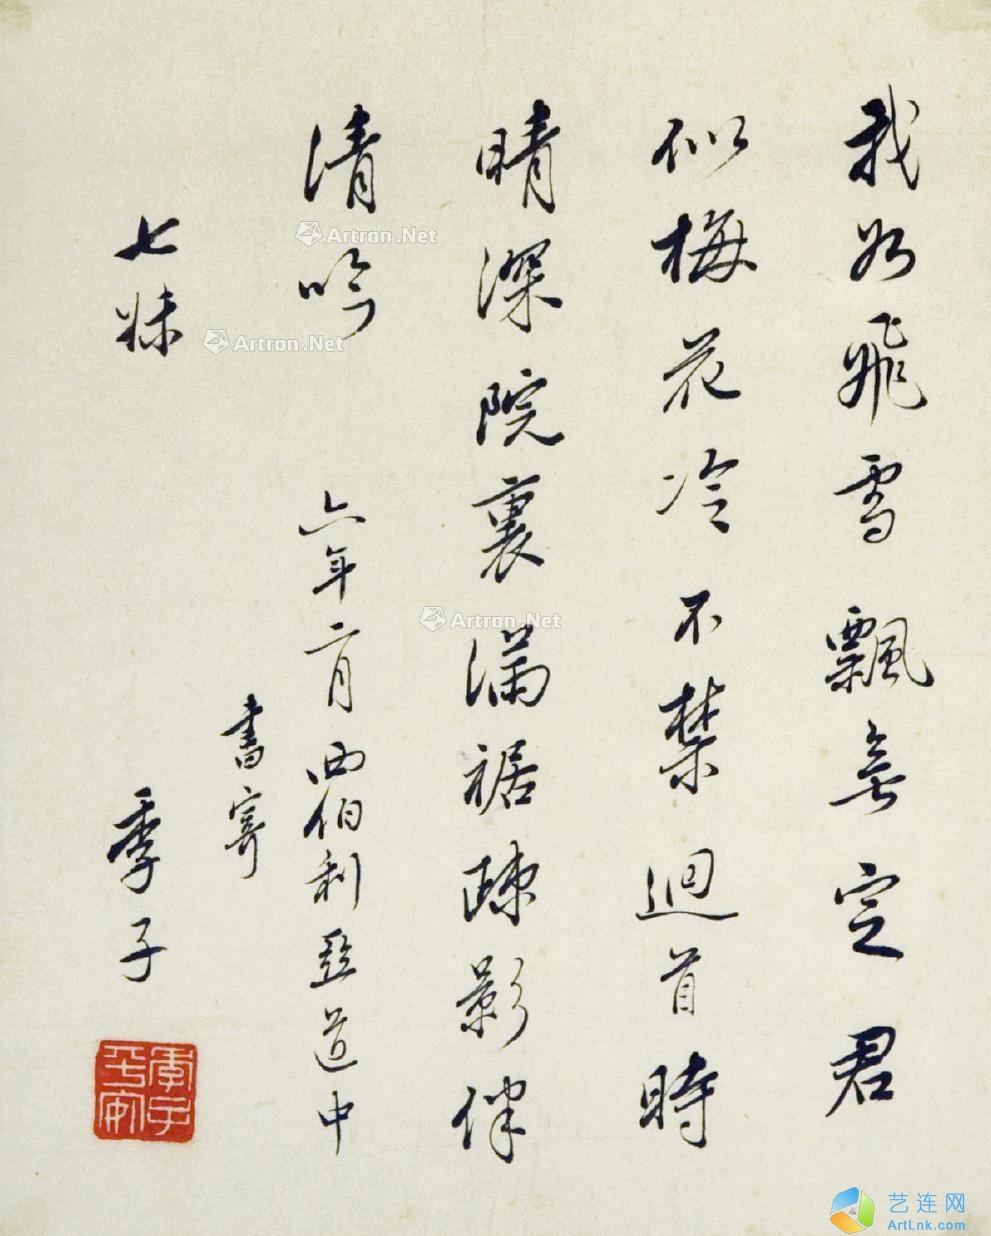 我如飛雪飄無定君
似梅花冷不禁迴首時
晴深院裏滿裾疎影伴
清吟
六年二月西伯利亞道中
書寄
七妹
季子
季子平安
Artron.Net
Artron.Net
Artron.Net
艺连网
ArtLnk.com